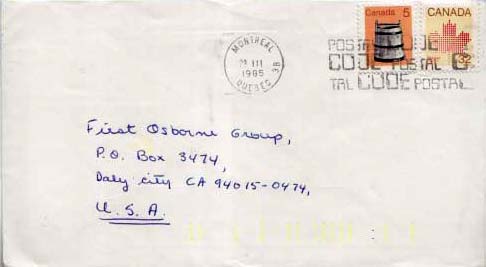 Canada 5
CANADA 32
MONTREAL
III
1985
QUEBEC
POSTAL CODE
CODE POSTAL
TAL CODE POSTAL
First Osborne Group,
P.O. Box 3474,
Daly City CA 94015-0474,
U.S.A.